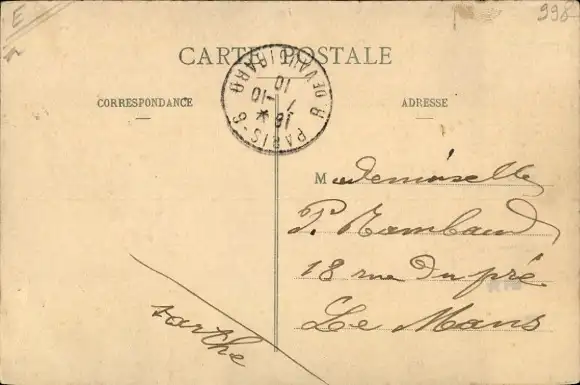 E
998
CARTE POSTALE
CORRESPONDANCE
ADRESSE
PARIS-6 * R. DE VAUGIRARD
18
7 -10
10
Mademoiselle
P. Rambaud
18 rue du pré
Le Mans
Sarthe